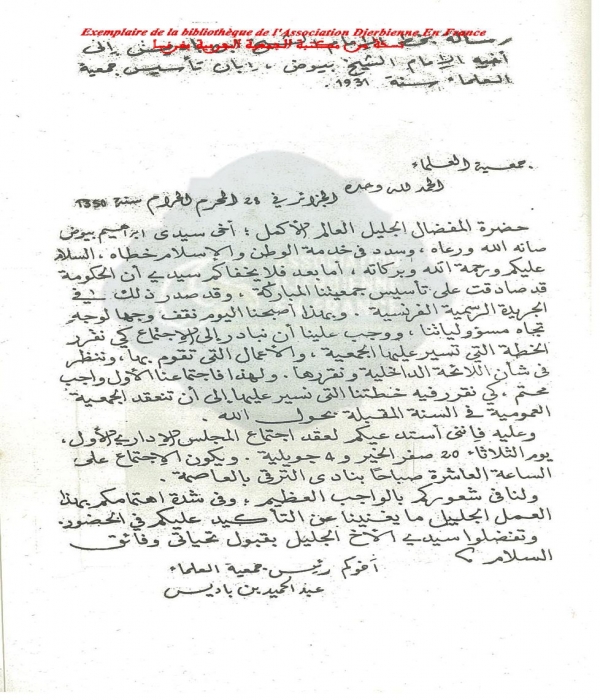 Exemplaire de la bibliothèque de l'Association Djerbienne En France
نسخة من مكتبة الجمعية الجربية بفرنسا
رسالة بخط الإمام الشيخ بن باديس إلى
أخيه الإمام الشيخ بيوض، إبان تأسيس جمعية
العلماء سنة 1931.
جمعية العلماء
الحمد لله وحده
الجزائر في 28 المحرم الحرام سنة 1350
حضرة المفضال الجليل العالم الأكمل؛ أخي سيدي ابراهيم بيوض
صانه الله ورعاه، وسدد في خدمة الوطن والإسلام خطاه، السلام
عليكم ورحمة الله وبركاته، أما بعد فلا يخفاكم سيدي أن الحكومة
قد صادقت على تأسيس جمعيتنا المباركة، وقد صدر ذلك في
الجريدة الرسمية الفرنسية، وبهذا أصبحنا اليوم نقف وجها لوجه
تجاه مسؤولياتنا، ووجب علينا أن نبادر إلى الإجتماع كي نقرر
الخطة التي تسير عليها الجمعية، والأعمال التي تقوم بها، وتنظر
في شأن اللائحة الداخلية ونقررها. ولهذا فاجتماعنا الأول واجب
محتم، كي نقرر فيه خطتنا التي نسير عليها إلى أن تنعقد الجمعية
العمومية في السنة المقبلة بحول الله.
وعليه فإنني أستدعيكم لعقد اجتماع المجلس الإداري الأول،
يوم الثلاثاء 20 صفر الخير و 4 جويلية. ويكون الإجتماع على
الساعة العاشرة صباحا بنادي الترقي بالعاصمة.
ولنا في شعوركم بالواجب العظيم، وفي شدة اهتمامكم بهذا
العمل الجليل ما يغنينا عن التأكيد عليكم في الحضور.
وتفضلوا سيدي الأخ الجليل بقبول تحياتي وفائق
السلام
أخوكم رئيس جمعية العلماء
عبد الحميد بن باديس